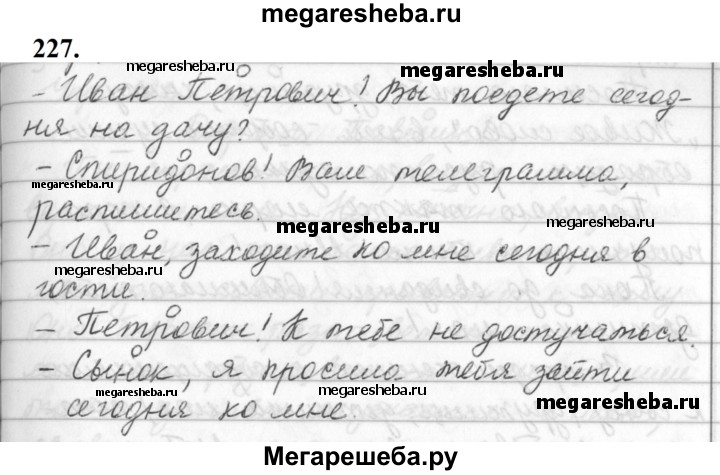 megaresheba.ru
227.
megaresheba.ru
megaresheba.ru
- Иван Петрович! Вы поедете сегод-
ня на дачу?
megaresheba.ru
- Спиридонов! Вам телеграмма,
megaresheba.ru
распишитесь.
megaresheba.ru
megaresheba.ru
- Иван, заходите ко мне сегодня в
megaresheba.ru
гости.
- Петрович! К тебе не достучаться.
megaresheba.ru
- Сынок, я просила тебя зайти
megaresheba.ru
megaresheba.ru
сегодня ко мне.
Мегарешеба.ру